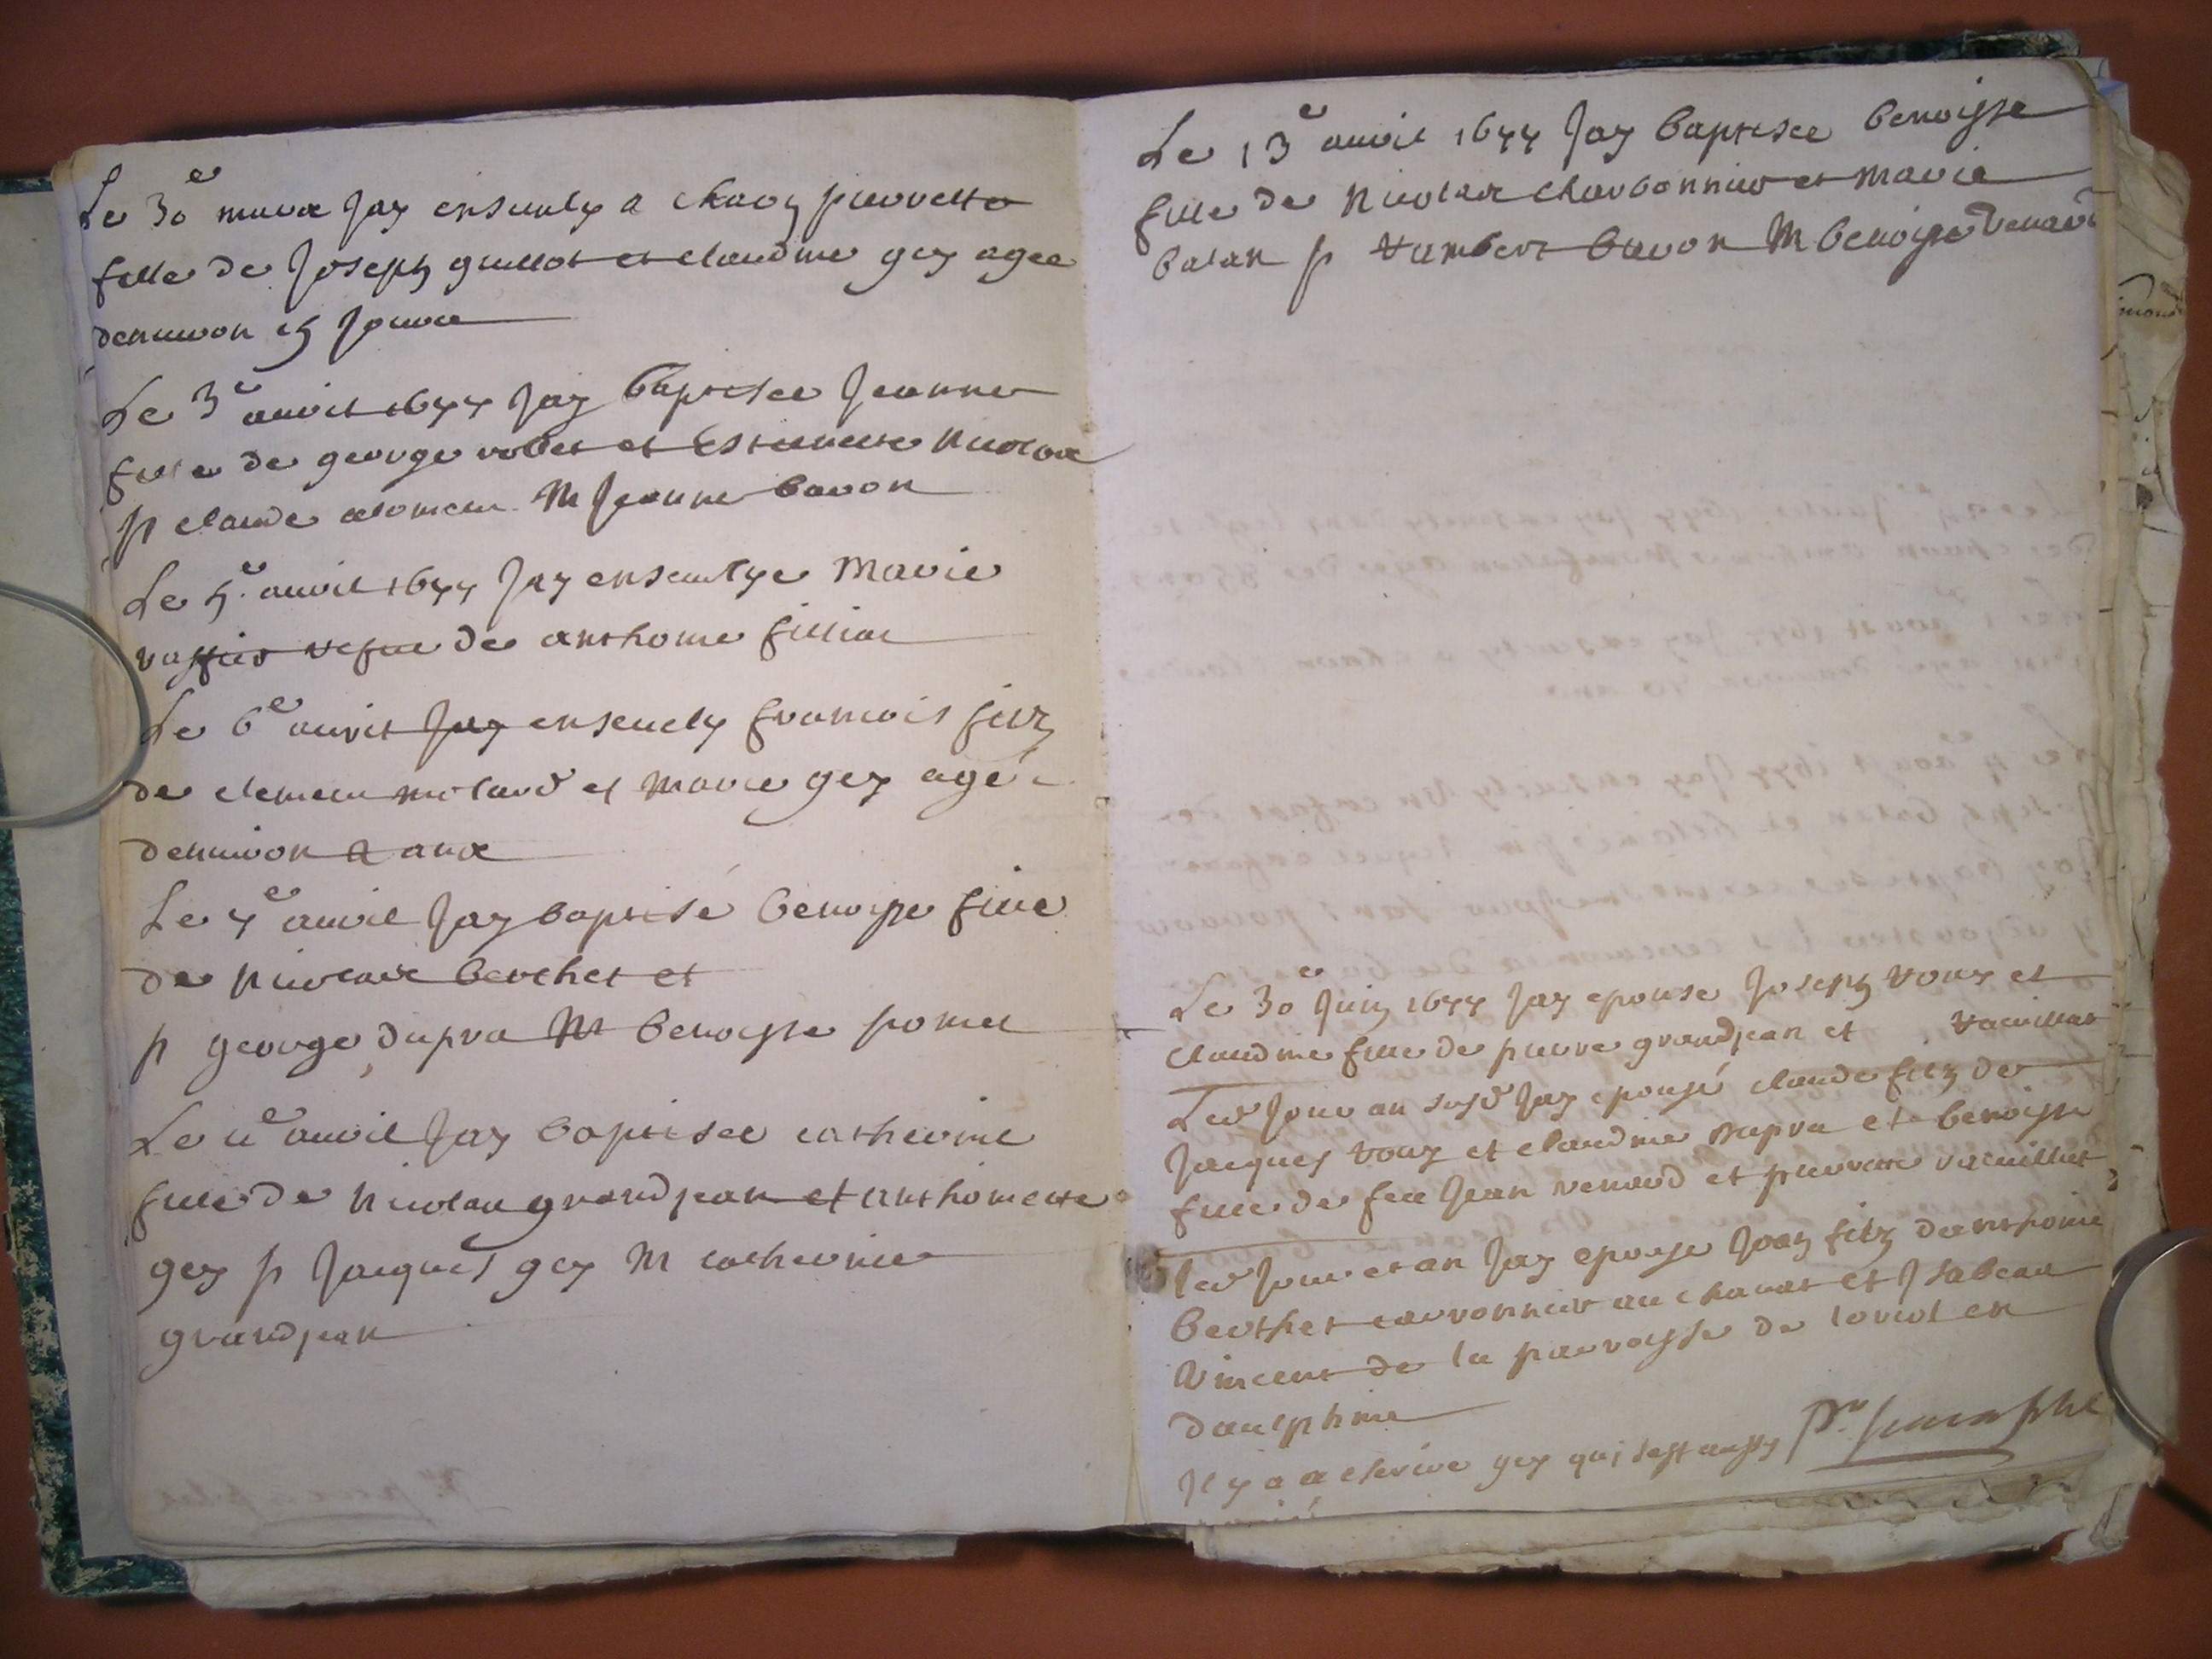 Le 30e marx Jay ensevely a chaon pierrette
fille de Joseph guillot et claudine gey agee
denviron 15 Jours
Le 3e avril 1677 Jay baptisee Jeanne
fille de george vollet et Estiennette Nicolax
p claude M Jeanne baron
Le 5e avril 1677 Jay ensevelye Marie
vefue de anthoine fillion
Le 6e avril Jay ensevely francois filz
de clement molard et Marie gey agé
denviron 2 anx
Le 7e avril Jay baptisé benoisse fille
de Nicolax berthet et
p george dupra M benoisse pomet
Le 11e avril Jay baptisee catherine
fille de Nicolax grandjean et anthoinette
gey p Jacques gey M catherine
grandjean
Le 13e avril 1677 Jay baptisee benoisse
fille de Nicolax charbonnier et Marie
balan p humbert baron M benoisse Renard
Le 30e Juin 1677 Jay epouse Joseph vouy et
claudine fille de pierre grandjean et vacuillat
Led Jour an susd Jay epousé claude filz de
Jacques vouy et claudine dupra et benoisse
fille de feu Jean renard et pierrette vacuillat
led Jour et an Jay epouse Jean filz danthoine
berthet charronnier au chanat et Isabeau
Vincent de la parroisse de loriol en
daulphine
Il y a a clerive gey qui sest aussy